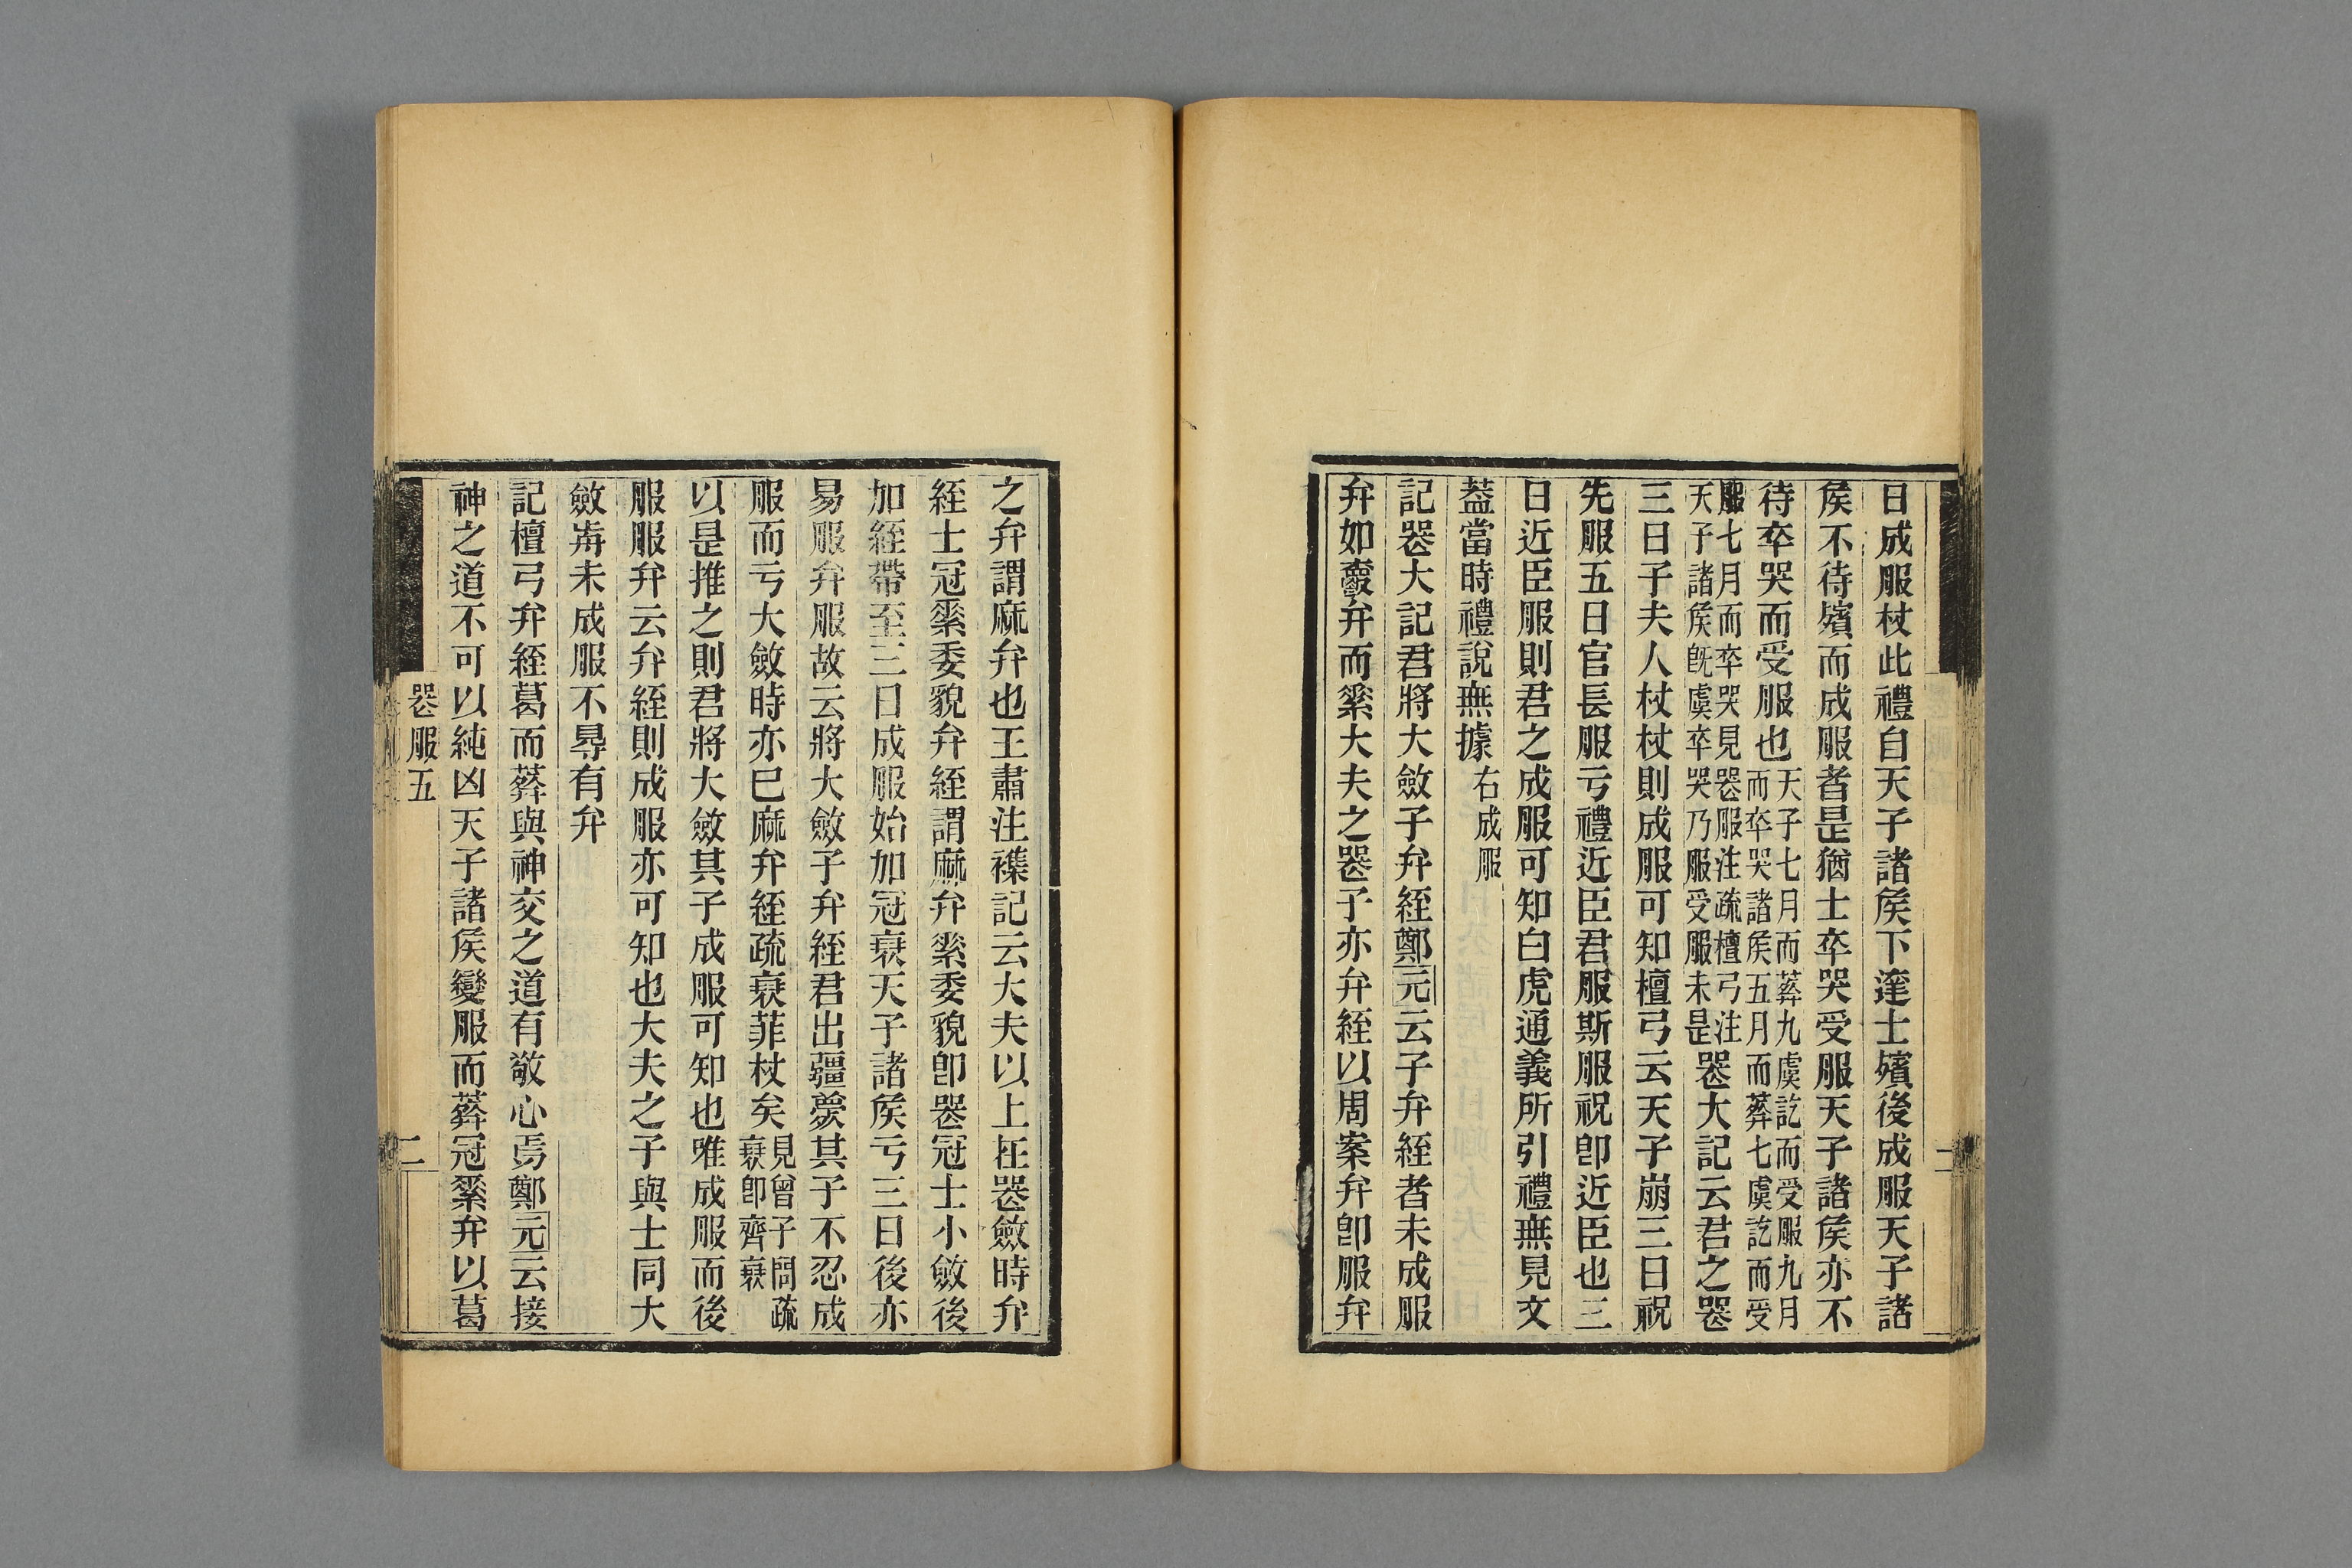 日成服杖此禮自天子諸矦下達士殯後成服天子諸
矦不待殯而成服者是猶士卒哭受服天子諸矦亦不
待卒哭而受服也天子七月而葬九虞訖而受服九月
而卒哭諸矦五月而葬七虞訖而受
服七月而卒哭見喪服注疏檀弓注
天子諸矦旣虞卒哭乃服受服未是喪大記云君之喪
三日子夫人杖杖則成服可知檀弓云天子崩三日祝
先服五日官長服亏禮近臣君服斯服祝卽近臣也三
日近臣服則君之成服可知白虎通義所引禮無見文
葢當時禮說無據右成服
記喪大記君將大斂子弁絰鄭元云子弁絰者未成服
弁如爵弁而素大夫之喪子亦弁絰以周案弁卽服弁
之弁謂麻弁也王肅注襍記云大夫以上在喪斂時弁
絰士冠素委貌弁絰謂麻弁素委貌卽喪冠士小斂後
加絰帶至三日成服始加冠衰天子諸矦亏三日後亦
易服弁服故云將大斂子弁絰君出疆薨其子不忍成
服而亏大斂時亦巳麻弁絰疏衰菲杖矣見曾子問疏
衰卽齊衰
以是推之則君將大斂其子成服可知也唯成服而後
服服弁云弁絰則成服亦可知也大夫之子與士同大
斂歬未成服不㝵有弁
記檀弓弁絰葛而葬與神交之道有敬心焉鄭元云接
神之道不可以純凶天子諸矦變服而葬冠素弁以葛
喪服五
二